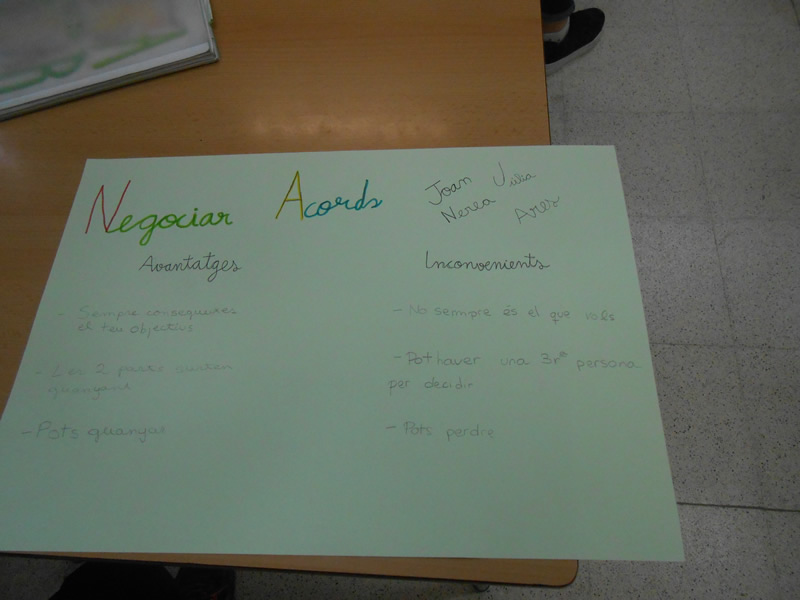 Negociar Acords
Joan Júlia
Nerea Ares
Avantatges
Inconvenients
- Sempre consegueixes
el teu objectius
- Les 2 parts surten
guanyant
- Pots guanyar
- No sempre és el que vols
- Pot haver una 3rª persona
per decidir
- Pots perdre